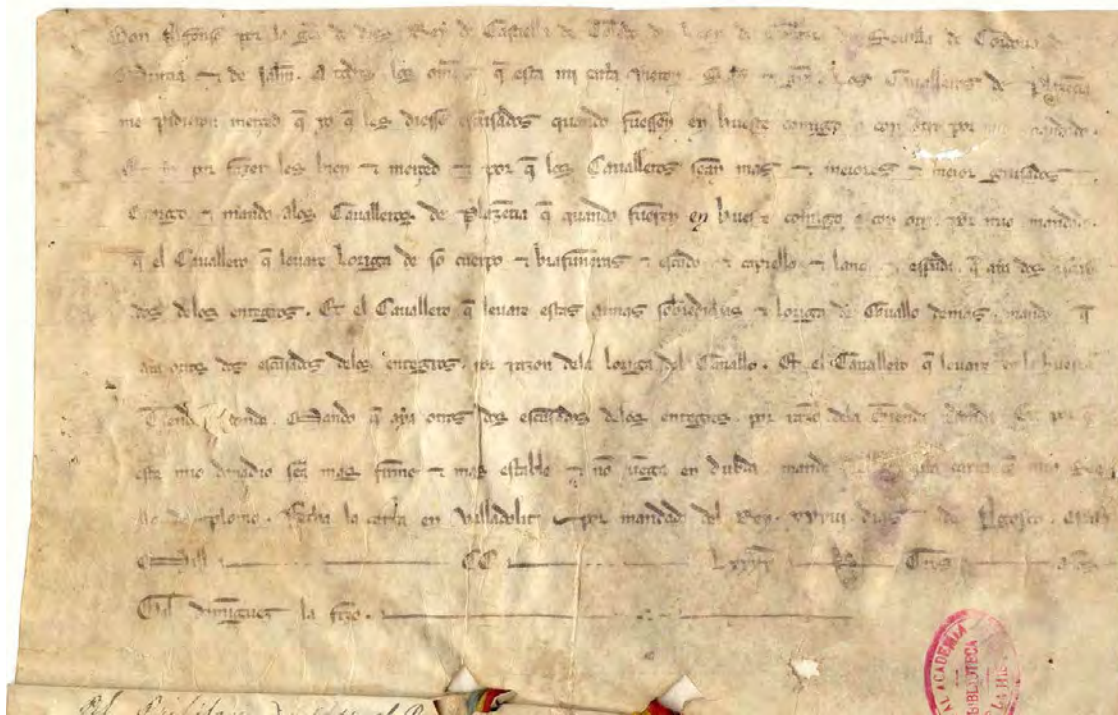 Don Alfonso por la gra de dios Rey de Castiella de Toledo de Leon de Gallizia de Seuilla de Cordoua de
Murcia ⁊ de Jahen. A todos los omnes q̃ esta mi carta uieren. Salut ⁊ gra. Los Caualleros de Plazẽcia
me pidieron merced q̃ yo q̃ les diesse escusados quando fuessen en hueste comigo o con otro por mio mandado.
Et yo por fazer les bien ⁊ merced ⁊ por q̃ los Caualleros seã mas ⁊ meiores ⁊ meior guisados
Otorgo ⁊ mando alos Caualleros de Plazẽcia q̃ quando fueren en hueste comigo o con otro por mio mandado.
q̃ el Cauallero q̃ leuare Loriga de so cuerpo ⁊ brafuneras ⁊ escudo ⁊ capiello ⁊ lança ⁊ espada. q̃ aya dos escusa
dos delos entegros. Et el Cauallero q̃ leuare estas armas sobredichas ⁊ loriga de Cauallo demas. mando q̃
aya otros dos escusados delos entegros. por razon dela loriga del Cauallo. Et el Cauallero q̃ leuare en la hueste
Tienda redonda. Mando q̃ aya otros dos escusados delos entegros. por razõ dela Tienda redonda. Et por q̃
este mio donadio seã mas firme ⁊ mas estable ⁊ nõ uẽga en dubda mande seellar esta carta cõ mio See
llo de plomo. Fecha la carta en Valladolit por mandado del Rey. XXVIII. dias de Agosto. Era
Mill CC LXXXX Tres años
Gil dominguez la fizo.
AL ACADEMIA
BIBLIOTECA
LA HIS
El